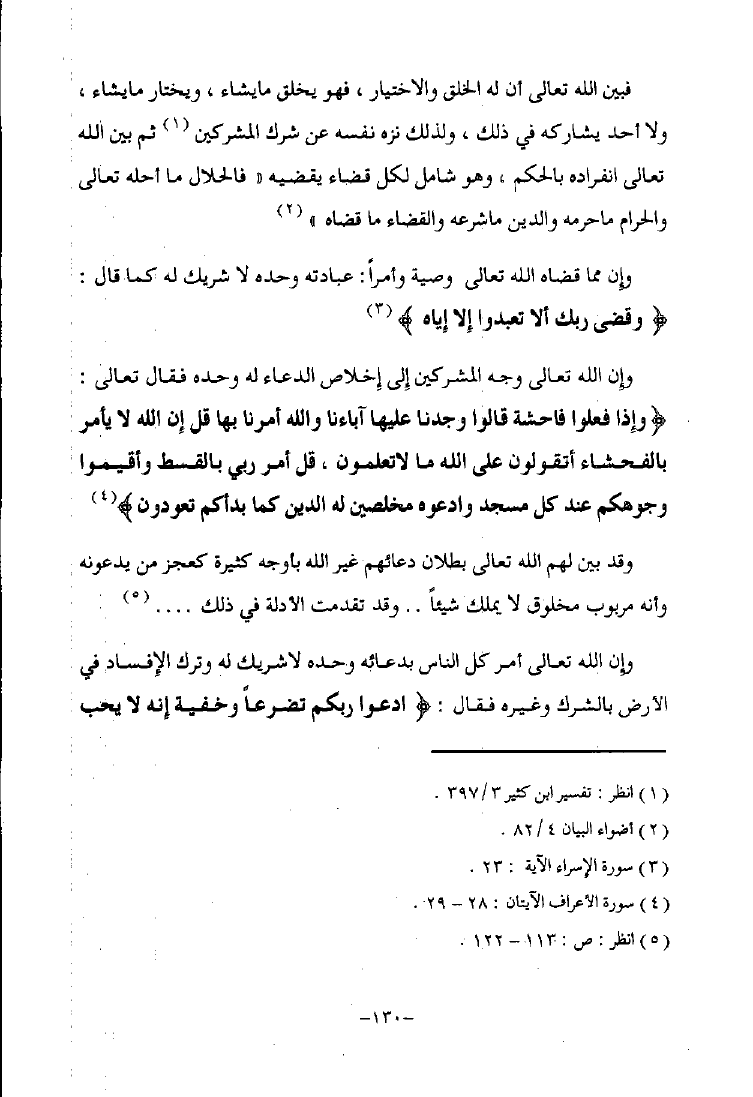 فبين الله تعالى أن له الخلق والاختيار ، فهو يخلق مايشاء ، ويختار مايشاء ،
ولا أحد يشاركه في ذلك ، ولذلك نزه نفسه عن شرك المشركين (١) ثم بين الله
تعالى انفراده بالحكم ، وهو شامل لكل قضاء يقضيه « فالحلال ما أحله تعالى
والحرام ماحرمه والدين ماشرعه والقضاء ما قضاه » (٢)
وإن مما قضاه الله تعالى وصية وأمراً : عبادته وحده لا شريك له كما قال :
﴿ وقضى ربك ألا تعبدوا إلا إياه ﴾ (٣)
وإن الله تعالى وجه المشركين إلى إخلاص الدعاء له وحده فقال تعالى :
﴿ وإذا فعلوا فاحشة قالوا وجدنا عليها آباءنا والله أمرنا بها قل إن الله لا يأمر
بالفحشاء أتقولون على الله ما لاتعلمون ، قل أمر ربي بالقسط وأقيموا
وجوهكم عند كل مسجد وادعوه مخلصين له الدين كما بدأكم تعودون ﴾ (٤)
وقد بين لهم الله تعالى بطلان دعائهم غير الله بأوجه كثيرة كعجز من يدعونه
وأنه مربوب مخلوق لا يملك شيئاً .. وقد تقدمت الأدلة في ذلك .... (٥)
وإن الله تعالى أمر كل الناس بدعائه وحده لاشريك له وترك الإفساد في
الأرض بالشرك وغيره فقال : ﴿ ادعوا ربكم تضرعاً وخفية إنه لا يحب
(١) انظر : تفسير ابن كثير ٣/ ٣٩٧ .
(٢) أضواء البيان ٤/ ٨٢ .
(٣) سورة الإسراء الآية : ٢٣ .
(٤) سورة الأعراف الآيتان : ٢٨ – ٢٩ .
(٥) انظر : ص : ١١٣ – ١٢٢ .
–١٣٠–